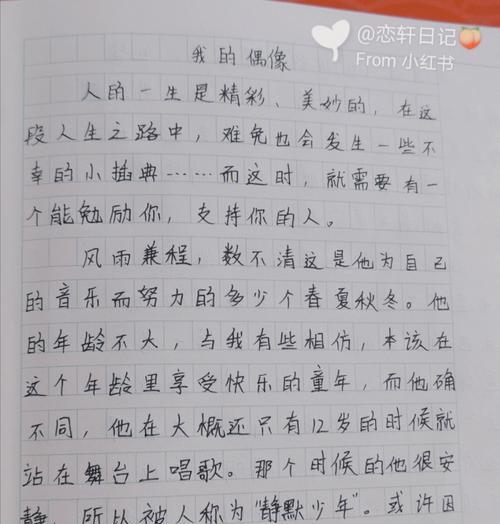 @恋轩日记🍑
From 小红书
我的偶像
人的一生是精彩、美妙的，在这
段人生之路中，难免也会发生一些不
幸的小插典……而这时，就需要有一
个能勉励你，支持你的人。
风雨兼程，数不清这是他为自己
的音乐而努力的多少个春夏秋冬。他
的年龄不大，与我有些相仿，本该在
这个年龄里享受快乐的童年，而他确
不同，他在大概还只有12岁的时候就
站在舞台上唱歌。那个时候的他很安
静，所以被人称为“静默少年”。或许因